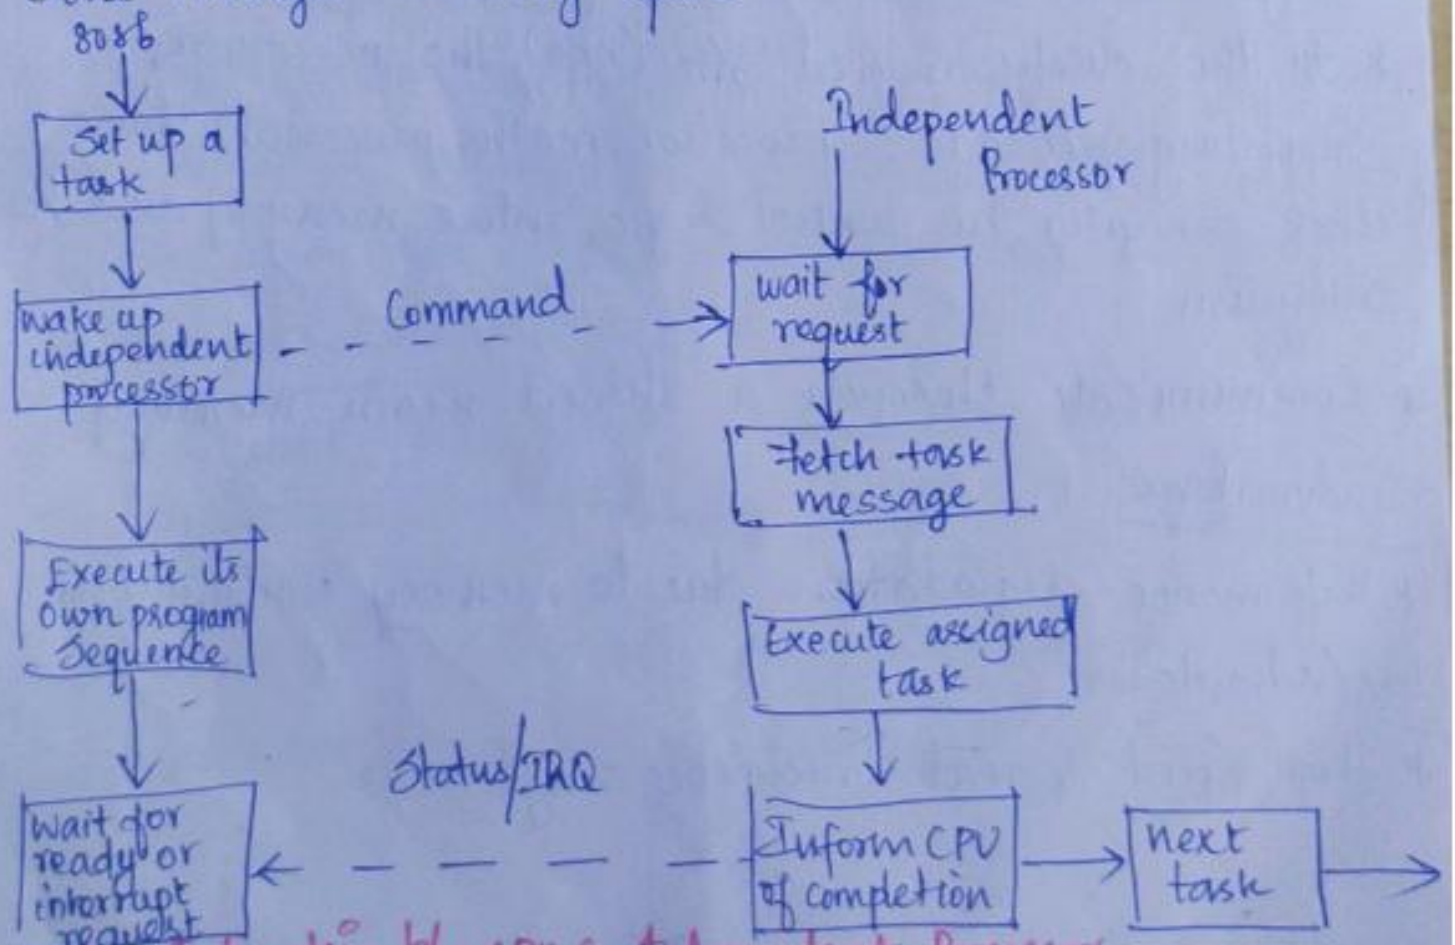 8086
Set up a
task
Wake up
independent
processor
Command
Execute its
Own program
Sequence
Wait for
ready or
interrupt
request
Status/IRQ
Independent
Processor
wait for
request
Fetch task
message
Execute assigned
task
Inform CPU
of completion
next
task